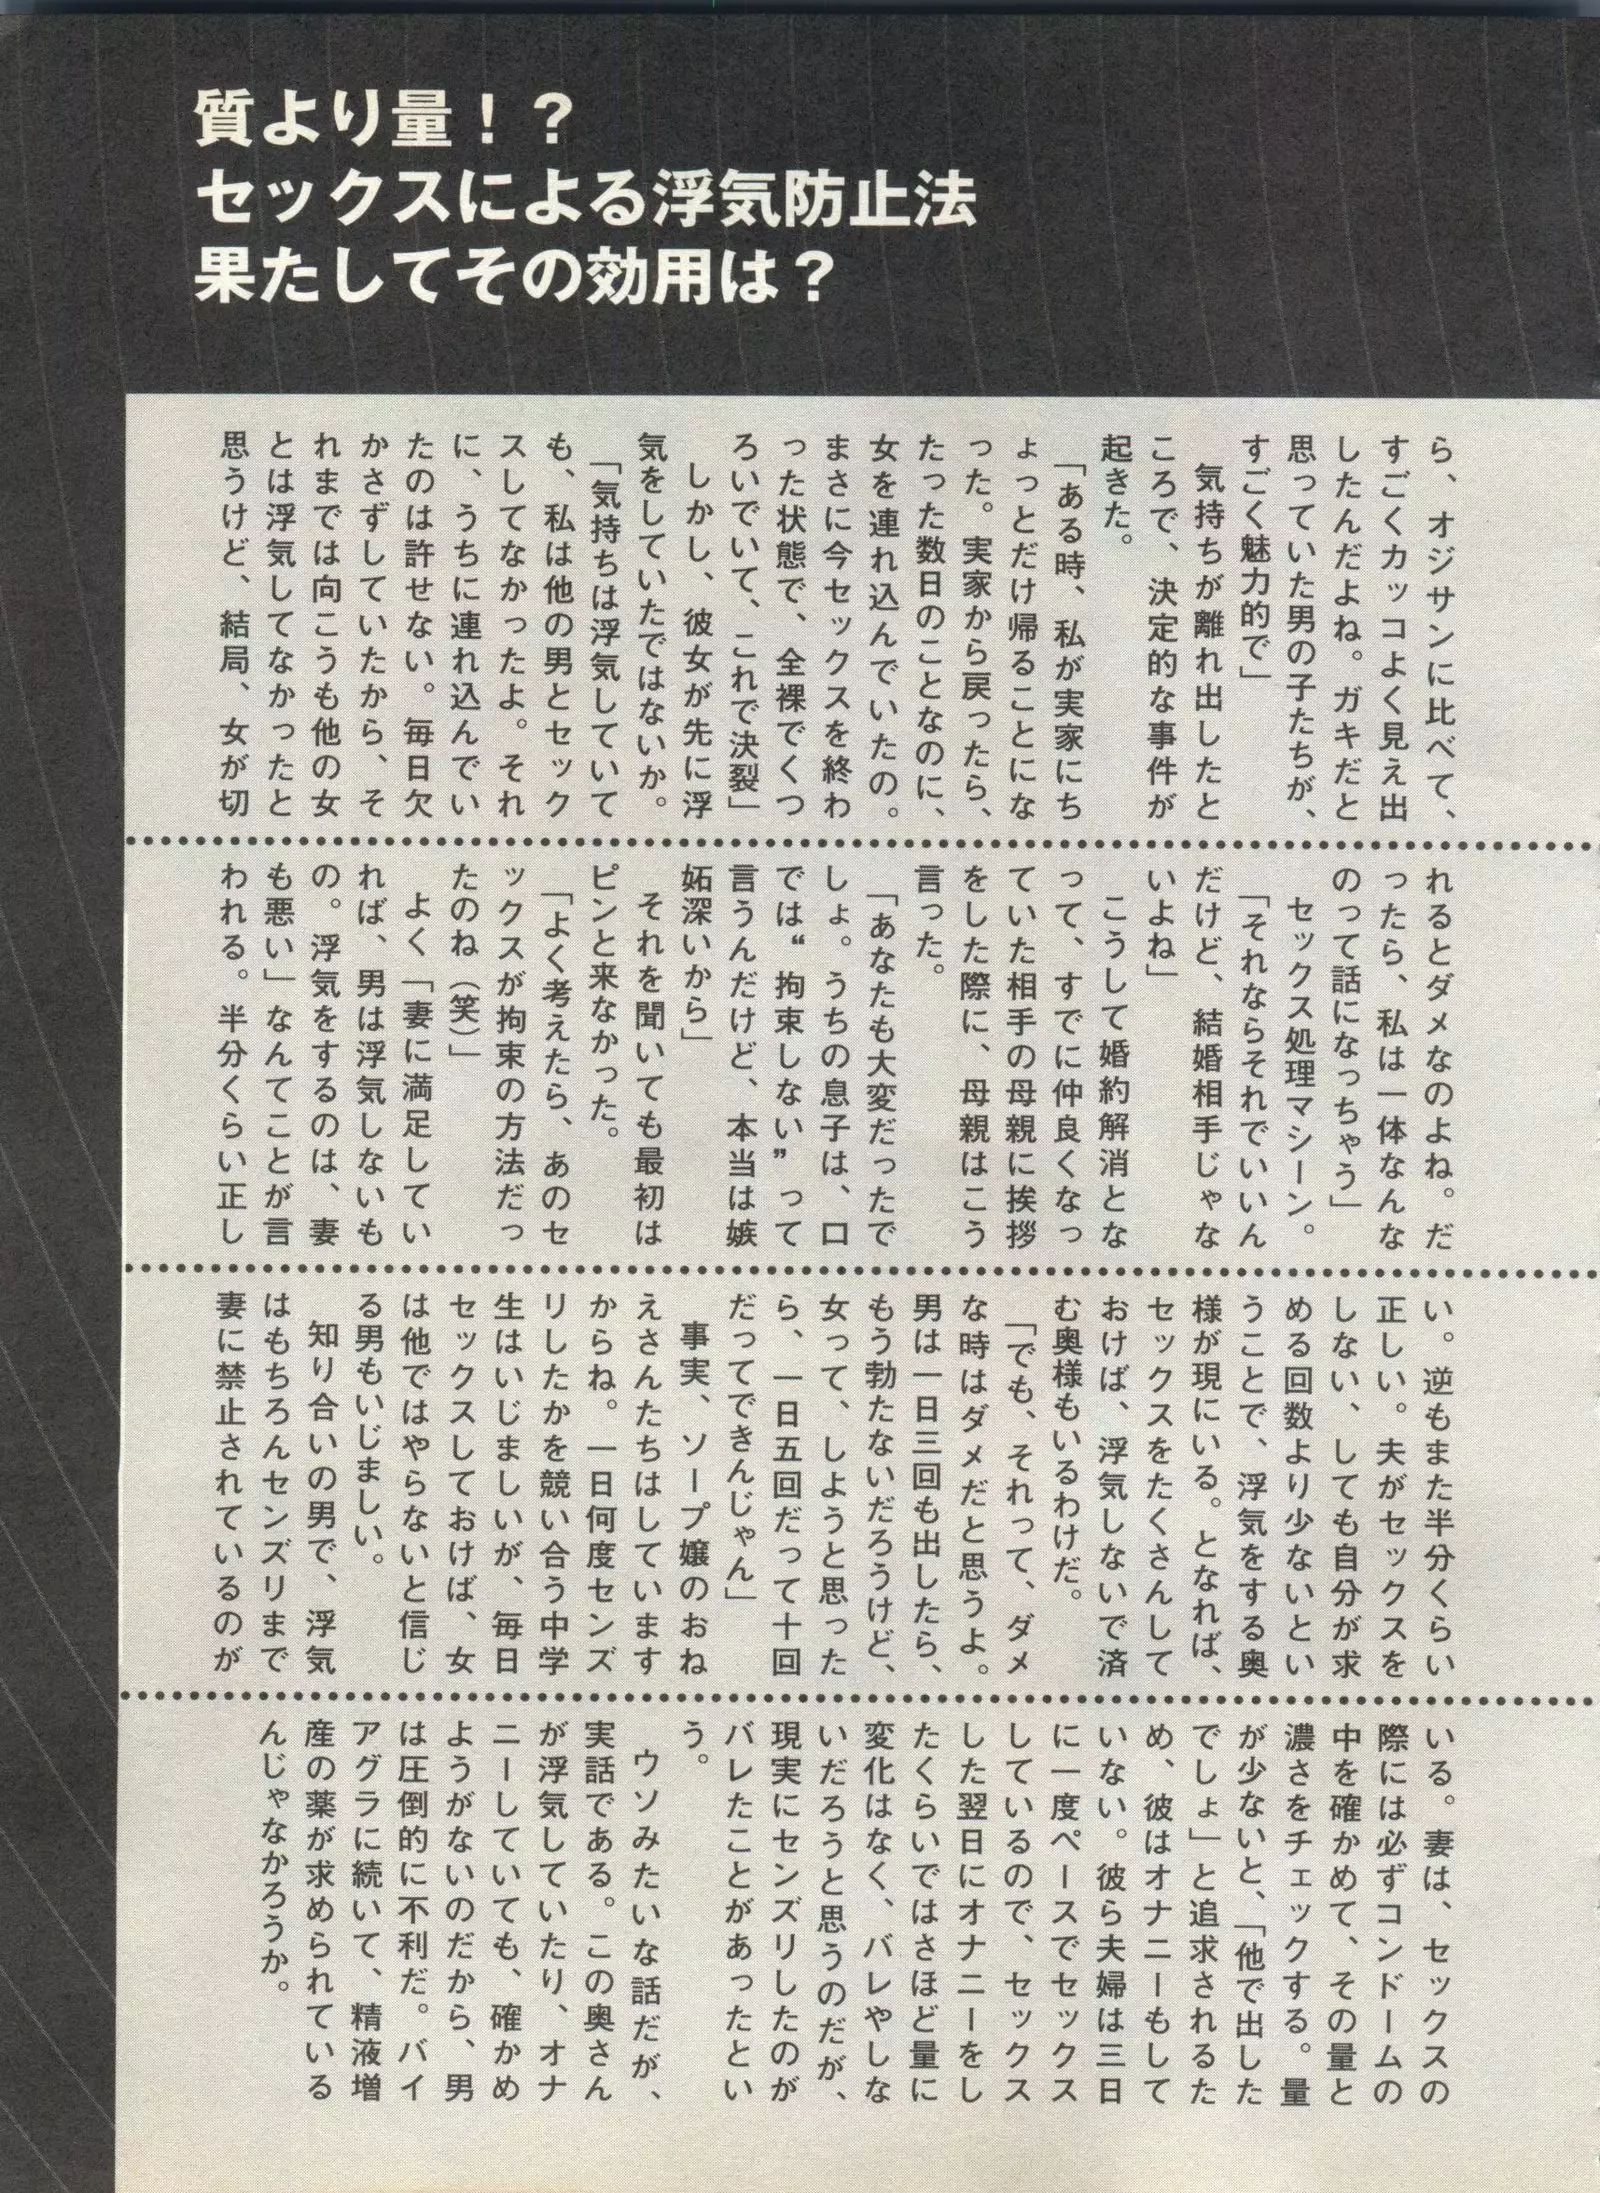 質より量！？
セックスによる浮気防止法
果たしてその効用は？
ら、オジサンに比べて、
すごくカッコよく見え出
したんだよね。ガキだと
思っていた男の子たちが、
すごく魅力的で」
気持ちが離れ出したと
ころで、決定的な事件が
起きた。
「ある時、私が実家にち
ょっとだけ帰ることにな
った。実家から戻ったら、
たった数日のことなのに、
女を連れ込んでいたの。
まさに今セックスを終わ
った状態で、全裸でくつ
ろいでいて、これで決裂」
しかし、彼女が先に浮
気をしていたではないか。
「気持ちは浮気していて
も、私は他の男とセック
スしてなかったよ。それ
に、うちに連れ込んでい
たのは許せない。毎日欠
かさずしていたから、そ
れまでは向こうも他の女
とは浮気してなかったと
思うけど、結局、女が切
れるとダメなのよね。だ
ったら、私は一体なんな
のって話になっちゃう」
セックス処理マシーン。
「それならそれでいいん
だけど、結婚相手じゃな
いよね」
こうして婚約解消とな
って、すでに仲良くなっ
ていた相手の母親に挨拶
をした際に、母親はこう
言った。
「あなたも大変だったで
しょ。うちの息子は、口
では〝拘束しない〟って
言うんだけど、本当は嫉
妬深いから」
それを聞いても最初は
ピンと来なかった。
「よく考えたら、あのセ
ックスが拘束の方法だっ
たのね（笑）」
よく「妻に満足してい
れば、男は浮気しないも
の。浮気をするのは、妻
も悪い」なんてことが言
われる。半分くらい正し
い。逆もまた半分くらい
正しい。夫がセックスを
しない、しても自分が求
める回数より少ないとい
うことで、浮気をする奥
様が現にいる。となれば、
セックスをたくさんして
おけば、浮気しないで済
む奥様もいるわけだ。
「でも、それって、ダメ
な時はダメだと思うよ。
男は一日三回も出したら、
もう勃たないだろうけど、
女って、しようと思った
ら、一日五回だって十回
だってできんじゃん」
事実、ソープ嬢のおね
えさんたちはしています
からね。一日何度センズ
リしたかを競い合う中学
生はいじましいが、毎日
セックスしておけば、女
は他ではやらないと信じ
る男もいじましい。
知り合いの男で、浮気
はもちろんセンズリまで
妻に禁止されているのが
いる。妻は、セックスの
際には必ずコンドームの
中を確かめて、その量と
濃さをチェックする。量
が少ないと、「他で出した
でしょ」と追求されるた
め、彼はオナニーもして
いない。彼ら夫婦は三日
に一度ペースでセックス
しているので、セックス
した翌日にオナニーをし
たくらいではさほど量に
変化はなく、バレやしな
いだろうと思うのだが、
現実にセンズリしたのが
バレたことがあったとい
う。
ウソみたいな話だが、
実話である。この奥さん
が浮気していたり、オナ
ニーしていても、確かめ
ようがないのだから、男
は圧倒的に不利だ。バイ
アグラに続いて、精液増
産の薬が求められている
んじゃなかろうか。